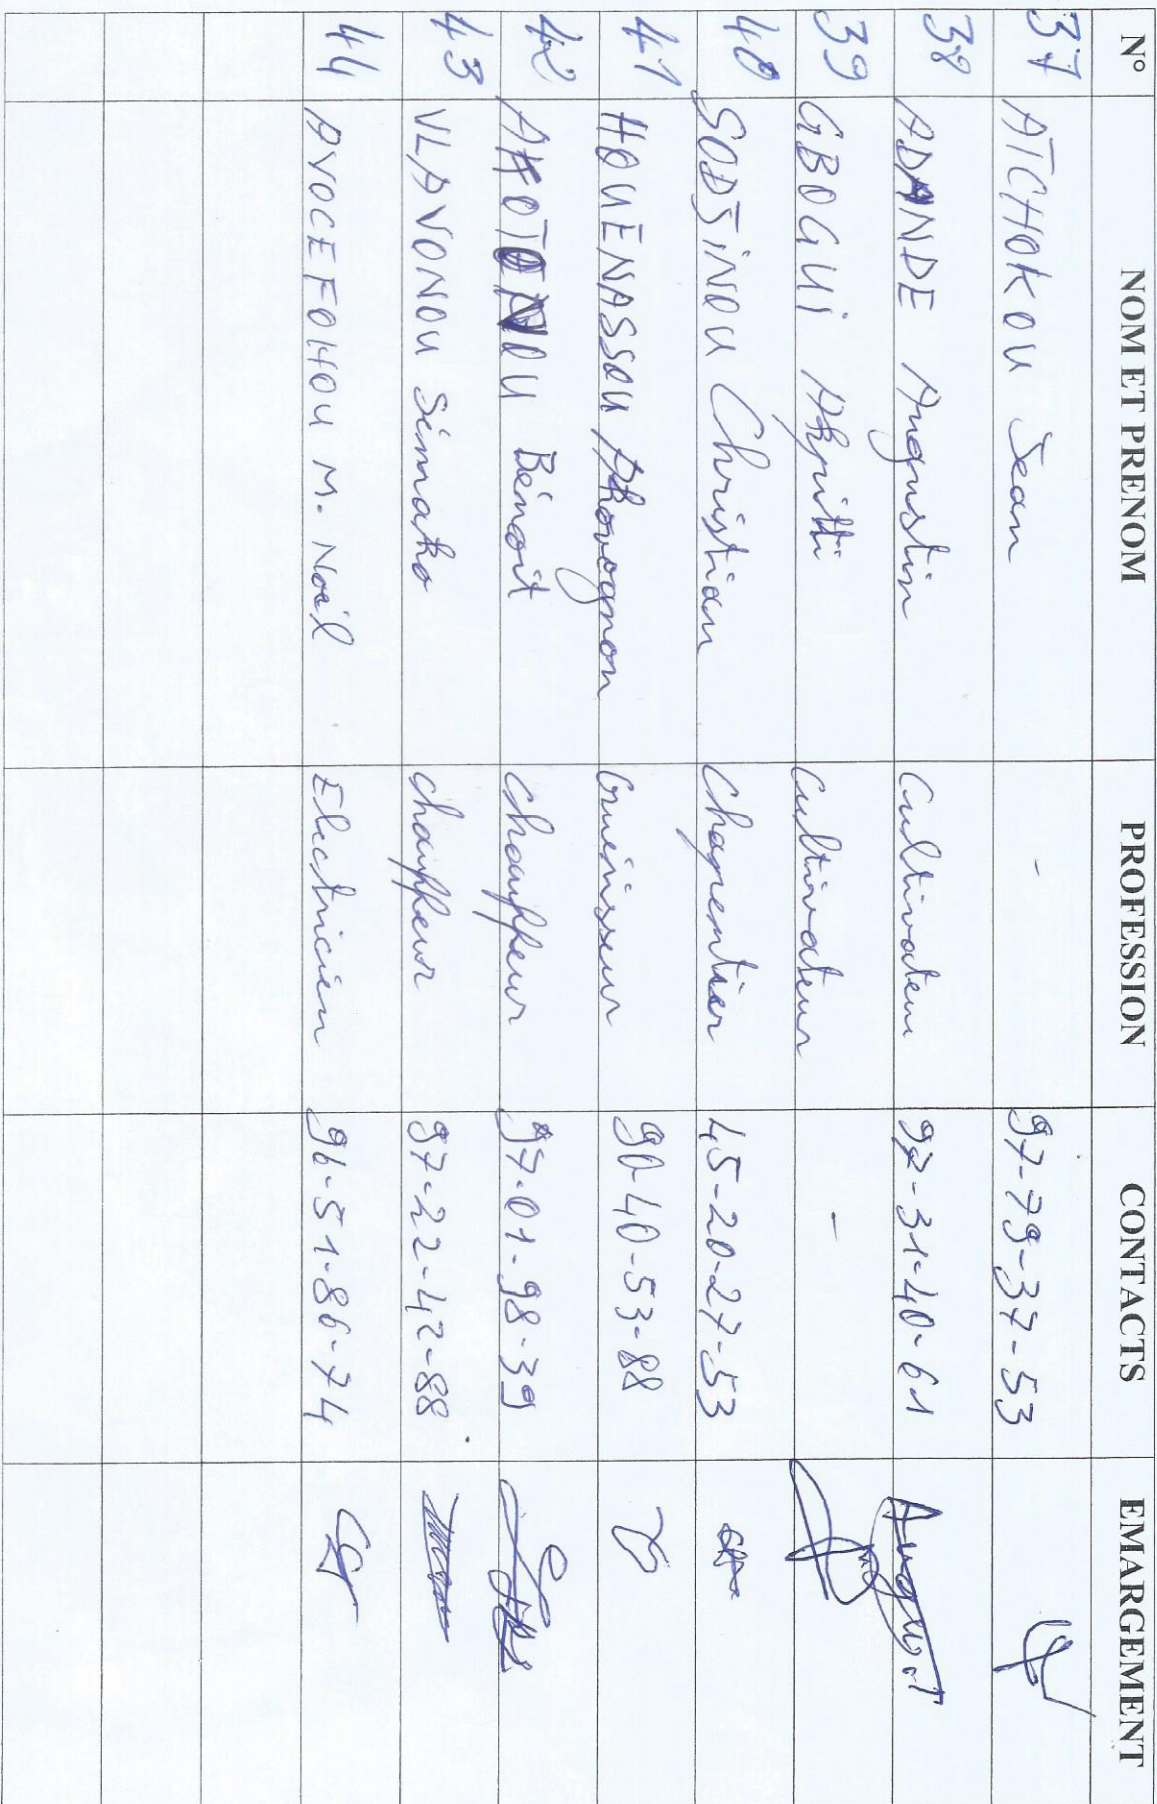 N° NOM ET PRENOM PROFESSION CONTACTS EMARGEMENT
37 ATCHOKOU Jean - 97-79-37-53
38 ADANDE Augustin Cultivateur 97-31-40-61 August
39 GBOGUi Cultivateur -
40 SODJiNOU Christian Chapentier 45-20-27-53
41 HOUENASSOU Ahovognon 90-40-53-88
42 Bénoit chauffeur 97-01-98-39
43 VLAVONOU Sémako chauffeur 97-22-42-88
44 AVOCEFOHOU M. Noël Electricien 96-51-86-74